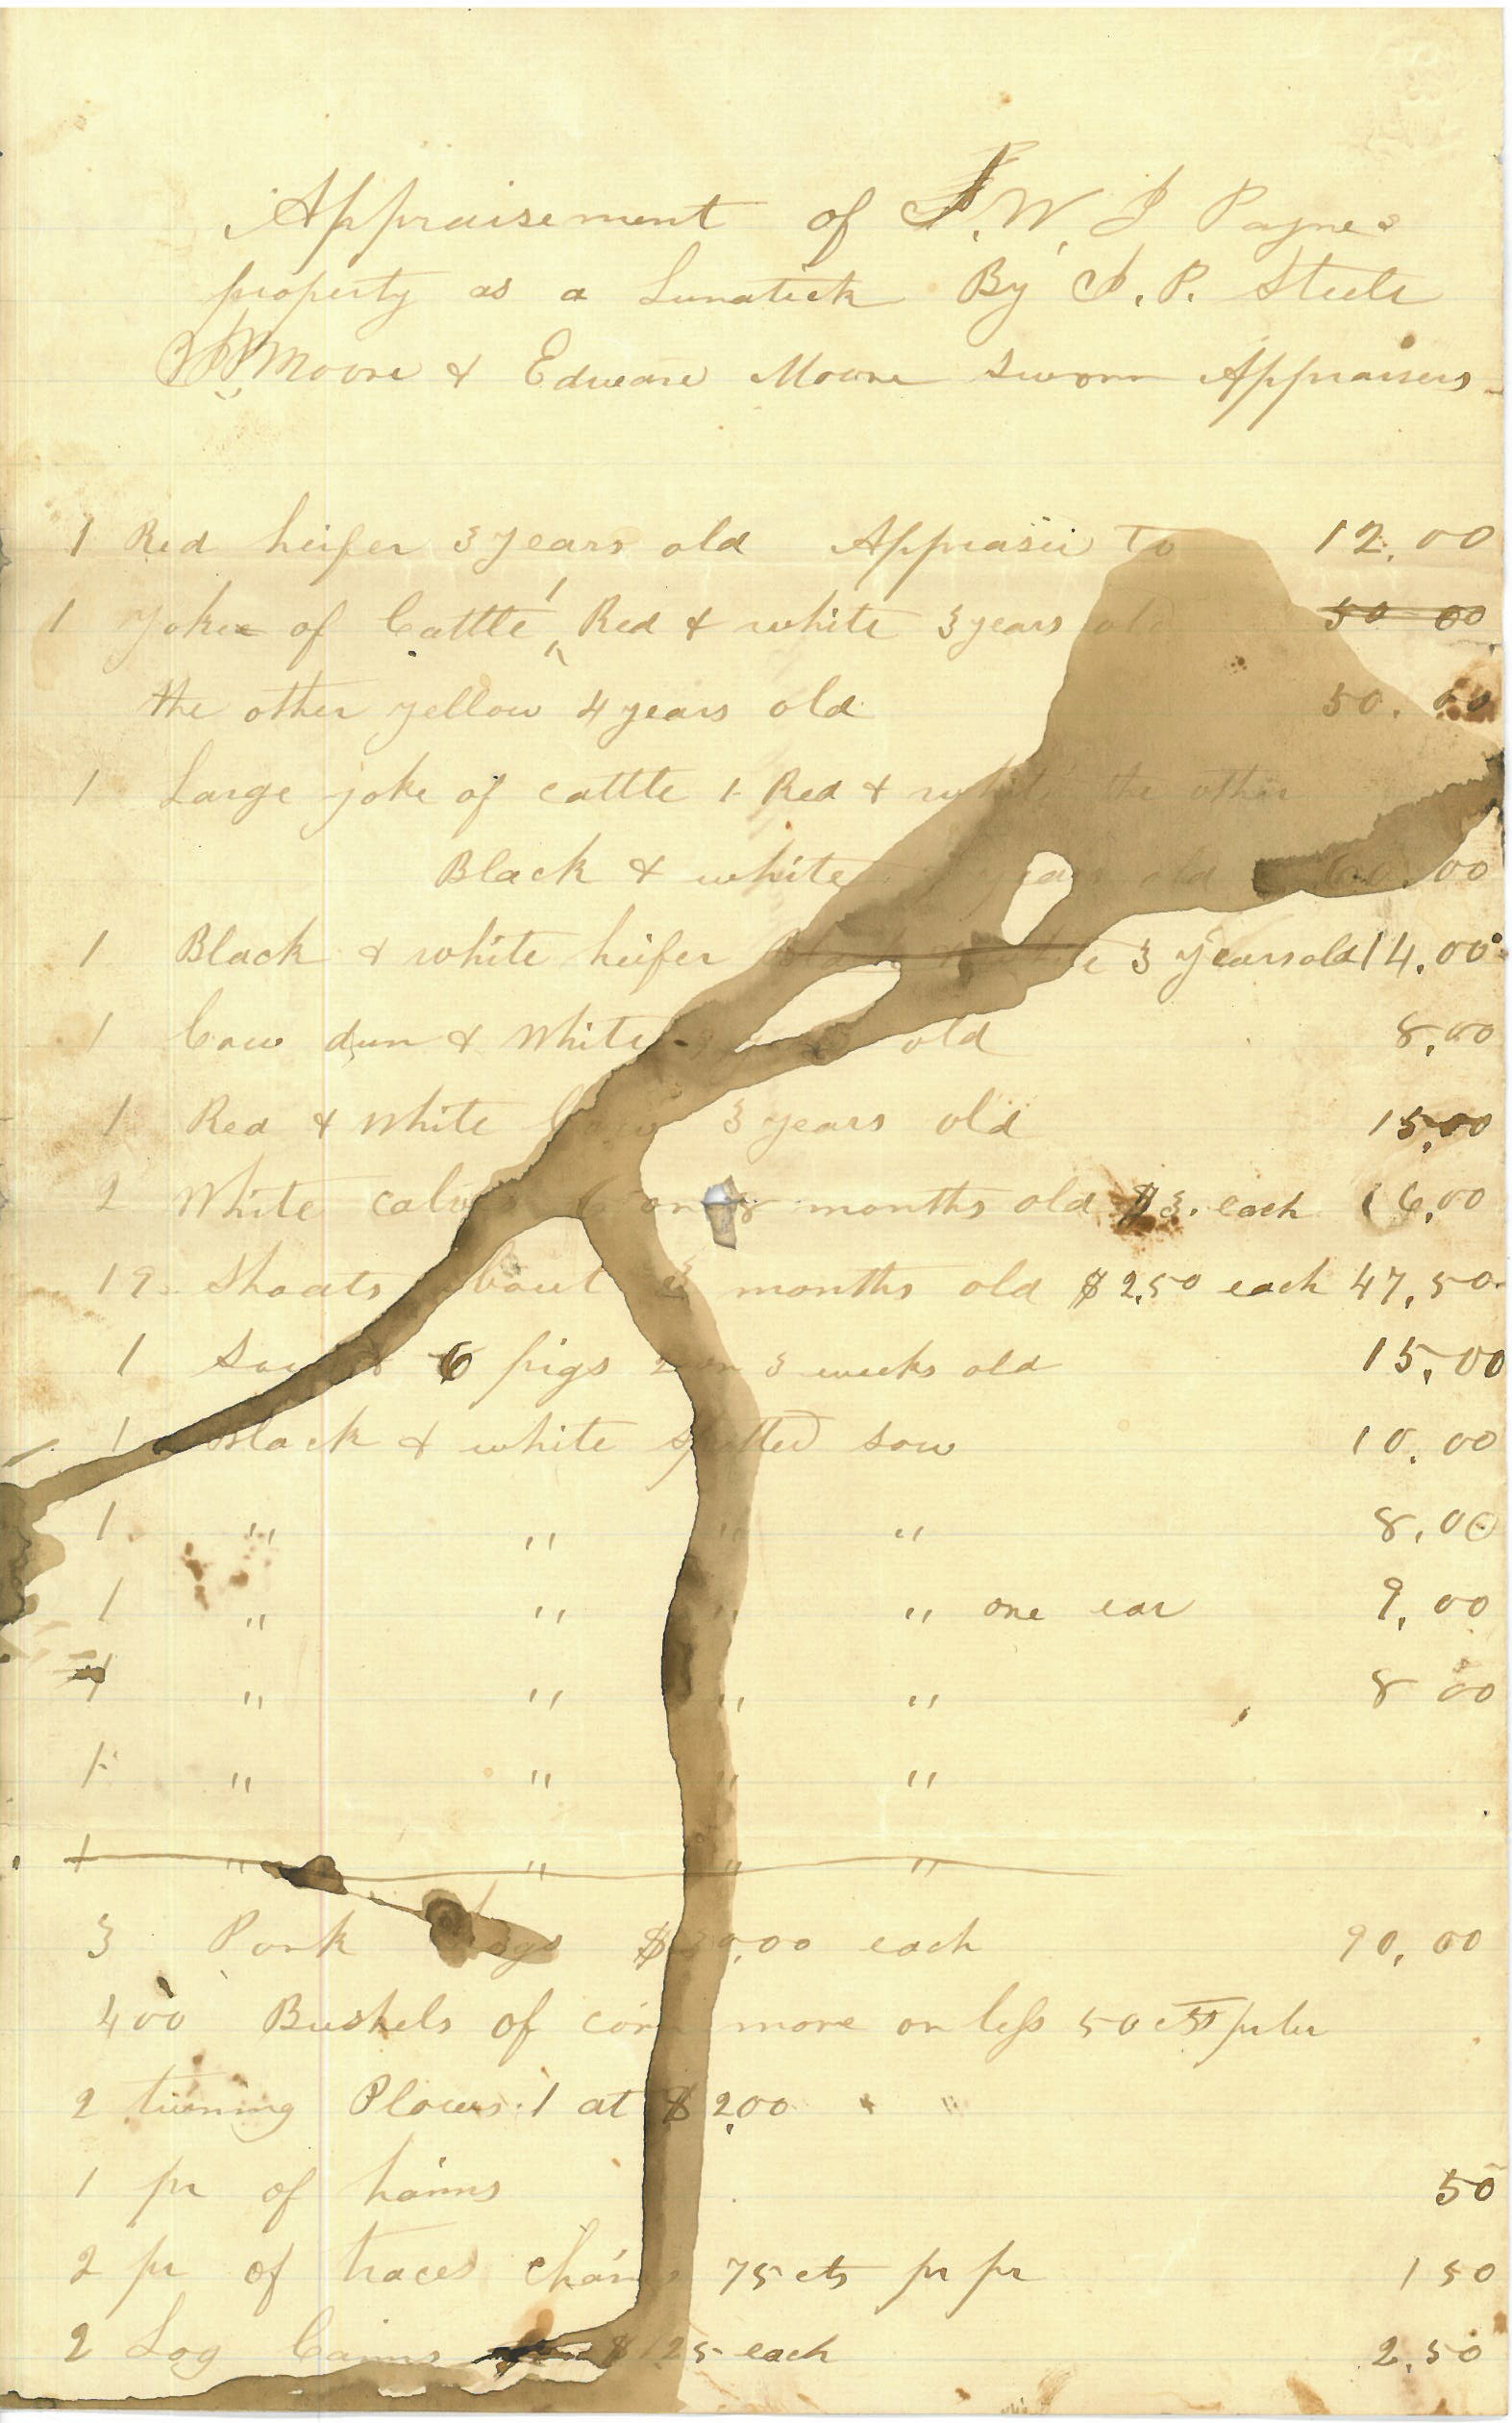 Appraisement of J. W. J Paynes
property as a Lunatick By J. P. Steele
Moore & Edward Moore sworn Appraisers
1 Red heifer 3 years old Appraised To 12.00
1 yoke of Cattle 1 Red & white 3 years old 50 00
the other yellow 4 years old 50.00
1 Large yoke of cattle 1 Red & white the other
Black & white years old 60.00
1 Black & white heifer Black & white 3 years old 14.00
1 Cow dun & White old 8.00
1 Red & White Cow 3 years old 15.00
2 White calves 6 or 8 months old $3. each 6.00
19 Shoats about 3 months old $2.50 each 47,50
1 Sow & 6 pigs 2 or 3 weeks old 15.00
1 Black & white spotted sow 10.00
1 " " " " 8.00
1 " " " " one ear 9,00
1 " " " " 8 00
1 " " " "
1 " " " "
3 Pork Hogs $30.00 each 90.00
400 Bushels of corn more or less 50 cts per bu
2 turning Plows 1 at $2.00
1 pr of hames 50
2 pr of traces chains 75 cts pr pr 1 50
2 Log Cains $1.25 each 2.50